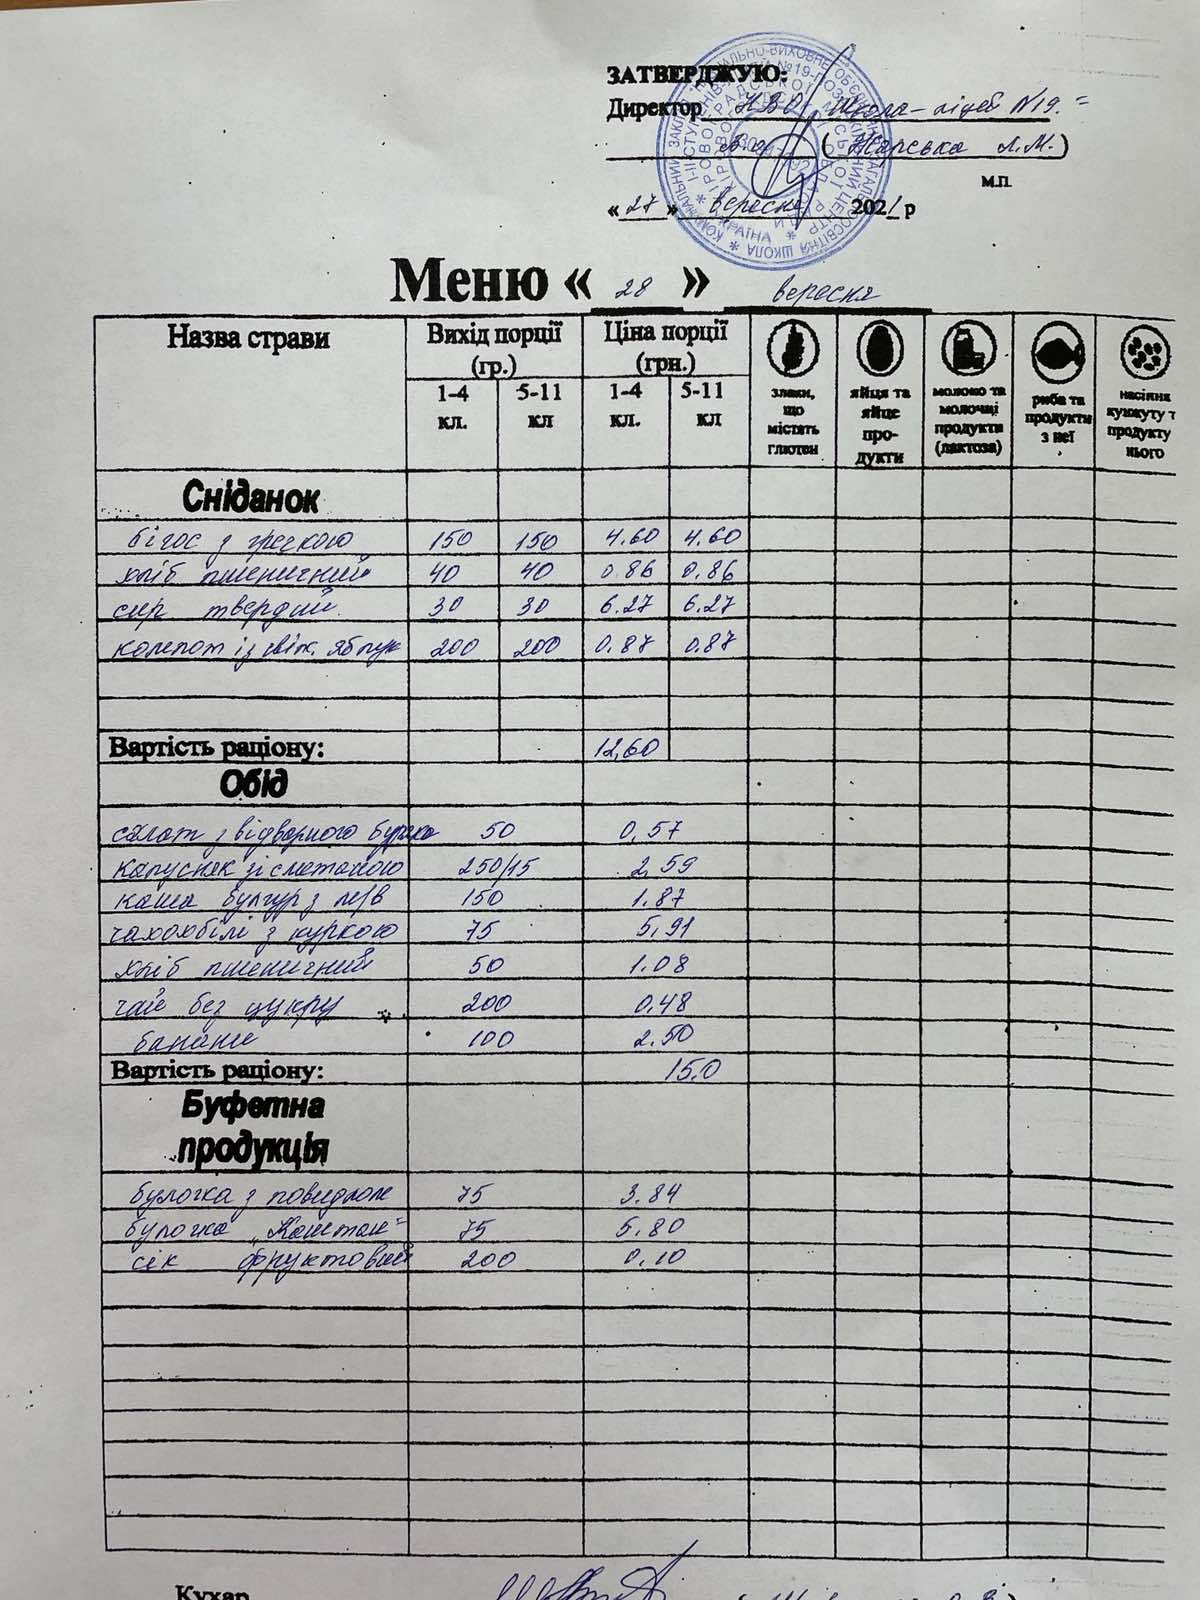 ЗАТВЕРДЖУЮ:
Директор НВО „Школа-ліцей №19"
В.о. (Жарська Л.М.)
М.П.
«27» вересня 2021 р
Меню «28» вересня
Назва страви Вихід порції (гр.) Ціна порції (грн.)
1-4 кл. 5-11 кл 1-4 кл. 5-11 кл
злаки, що містять глютен
яйця та яйце про-дукти
молоко та молочні продукти (лактоза)
риба та продукти з неї
насіння кунжуту т продукту нього
Сніданок
бігос з гречкою 150 150 4.60 4.60
хліб пшеничний 40 40 0.86 0.86
сир твердий 30 30 6.27 6.27
компот із свіж. яблук 200 200 0.87 0.87
Вартість раціону: 12,60
Обід
салат з відварного буряка 50 0,57
капусняк зі сметаною 250/15 2,59
каша булгур з м/в 150 1.87
чахохбілі з куркою 75 5,91
хліб пшеничний 50 1.08
чай без цукру 200 0.48
банани 100 2.50
Вартість раціону: 15.0
Буфетна
продукція
булочка з повидлом 75 3.84
булочка „Каштан" 75 5.80
сік фруктовий 200 0.10
Кухар